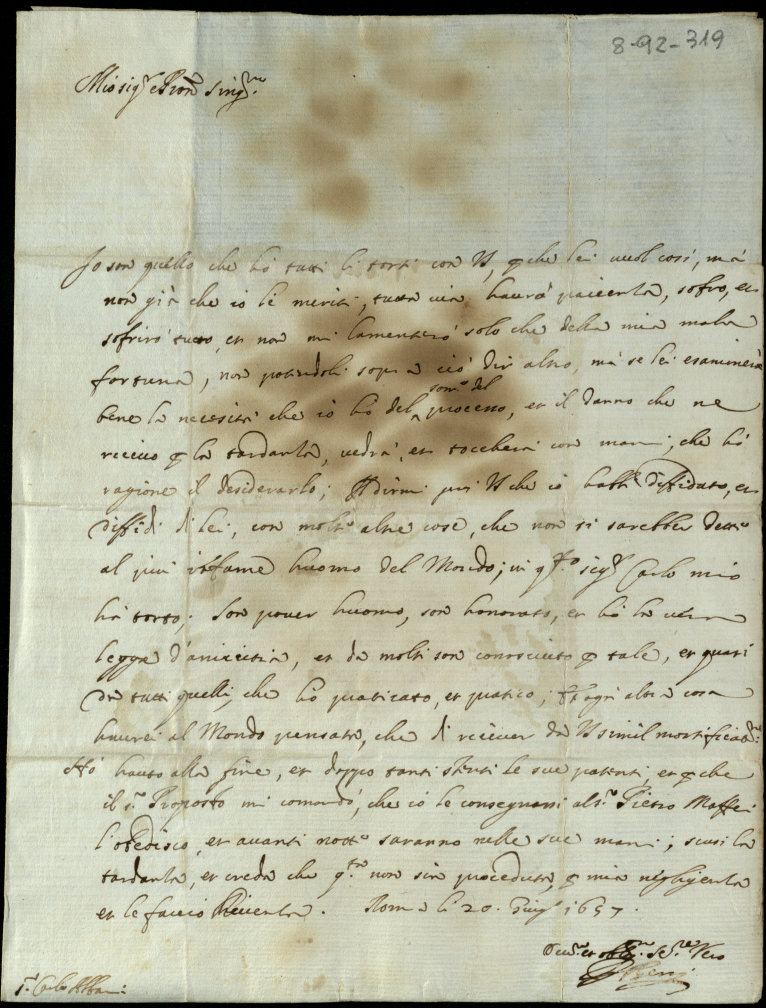 8-92-319
Mio sig.r e Pron Sing.re
Io son quello che hò tutti li torti con VS, perche lei vuol così, mà
non già che io le meriti, tutta via haurò pacienza, sofro, et
sofrirò tutto, et non mi lamenterò solo che della mia mala
fortuna, non potendoli sopra ciò dir altro, mà se lei esaminerà
bene la necesità che io hò del processo, et il danno che ne
som.o del
riceuo per la tardanza, uedrà, et toccherà con mani, che hò
ragione il desiderarlo; dirmi poi VS che io habbi diffidato, et
diffidi di lei, con molte altre cose, che non si sarebber dette
al più infame huomo del Mondo; in q.to sig.r Carlo mio
hà torto; son pouer huomo, son honorato, et hò la uera
legge d'amicitia, et da molti son conosciuto per tale, et quasi
da tutti quelli, che hò praticato, et pratico; ogni altra cosa
haurei al Mondo pensato, che di riceuer da VS simil mortificat.ne
Hò hauto alla fine, et doppo tanti stenti le sue patenti, et perche
il s.r Proposto mi comandò, che io le consegnassi al s.r Pietro Maffei
l'obedisco, et auanti notte saranno nelle sue mani; scusi la
tardanza, et creda che q.ta non sia proceduta per mia negligenza
et le faccio Riuerenza. Roma li 20. Giug.o 1657.
Ser.re Vero
s.r Carlo